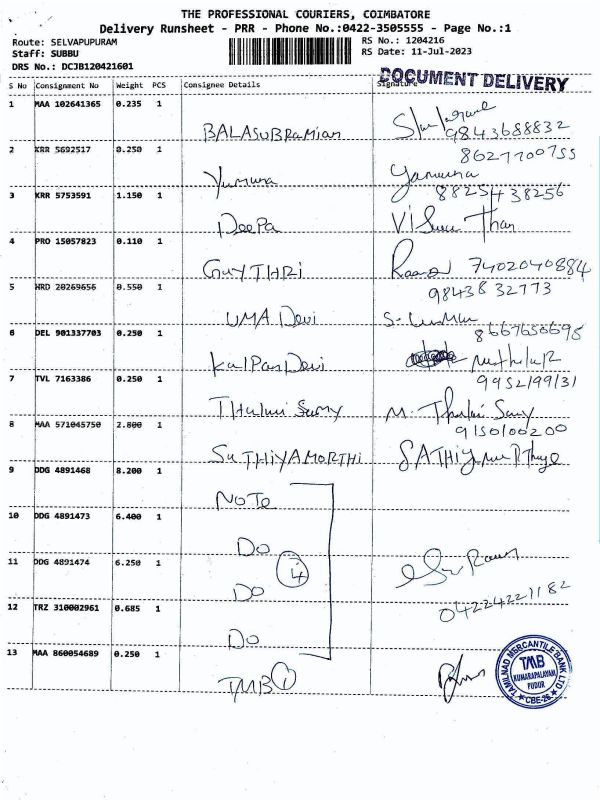 THE PROFESSIONAL COURIERS, COIMBATORE
Delivery Runsheet - PRR - Phone No.:0422-3505555 - Page No.:1
Route: SELVAPUPURAM
RS No.: 1204216
Staff: SUBBU
RS Date: 11-Jul-2023
DRS No.: DCJB120421601
DOCUMENT DELIVERY
S No Consignment No Weight PCS Consignee Details Signature
1 MAA 102641365 0.235 1
BALASUBRamian
9843688832
2 KRR 5692517 0.250 1
8627700755
Yumuna Yamuna
3 KRR 5753591 1.150 1
8825438256
DeePa
4 PRO 15057823 0.110 1
GUYTHRI 7402040884
5 HRD 20269656 0.550 1
9843832773
UMA Devi
6 DEL 901337703 0.250 1
8667650695
KalPanDevi
7 TVL 7163386 0.250 1
9952199131
8 MAA 571045750 2.800 1
9150100200
SaTHIYAMORTHI
9 DDG 4891468 8.200 1
NOTE
10 DDG 4891473 6.400 1
DO
11 DDG 4891474 6.250 1
4
DO
12 TRZ 310002961 0.685 1
04224221182
DO
13 MAA 860054689 0.250 1
TMB 1
TAMILNAD MERCANTILE BANK LTD
TMB
KUMARAPALAYAM
PUDUR
CBE-26